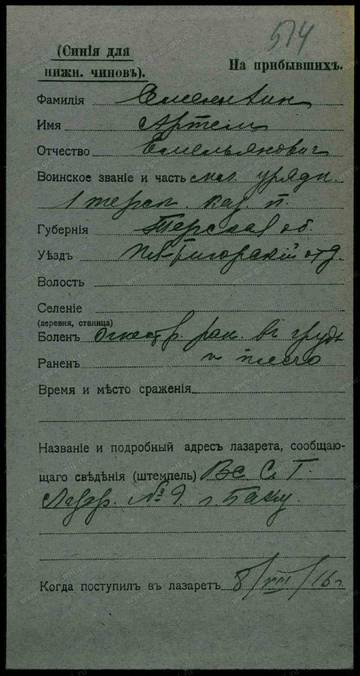 574
(Синія для
нижн. чиновъ).
На прибывшихъ.
Фамилія
Имя Артем
Отчество Емельянович
Воинское званіе и часть мл. урядн.
1 терск. каз. п.
Губернія Терская об.
Уѣздъ Пятигорскій отд.
Волость
Селеніе
(деревня, станица)
Боленъ огнестр. ран. в грудь
Раненъ и плечо
Время и мѣсто сраженія
Названіе и подробный адресъ лазарета, сообщаю-
щаго свѣдѣнія (штемпель) Вс. С. Г.
Лазар. № 9. г. Баку
Когда поступилъ въ лазаретъ 8/VIII/16 г.